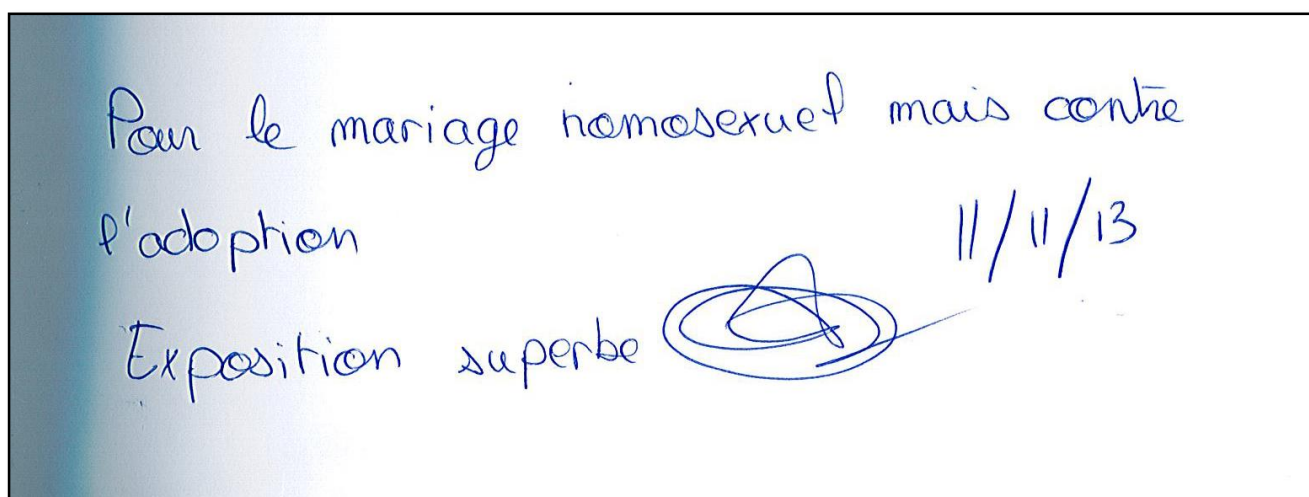 Pour le mariage homosexuel mais contre
l'adoption
11/11/13
Exposition superbe